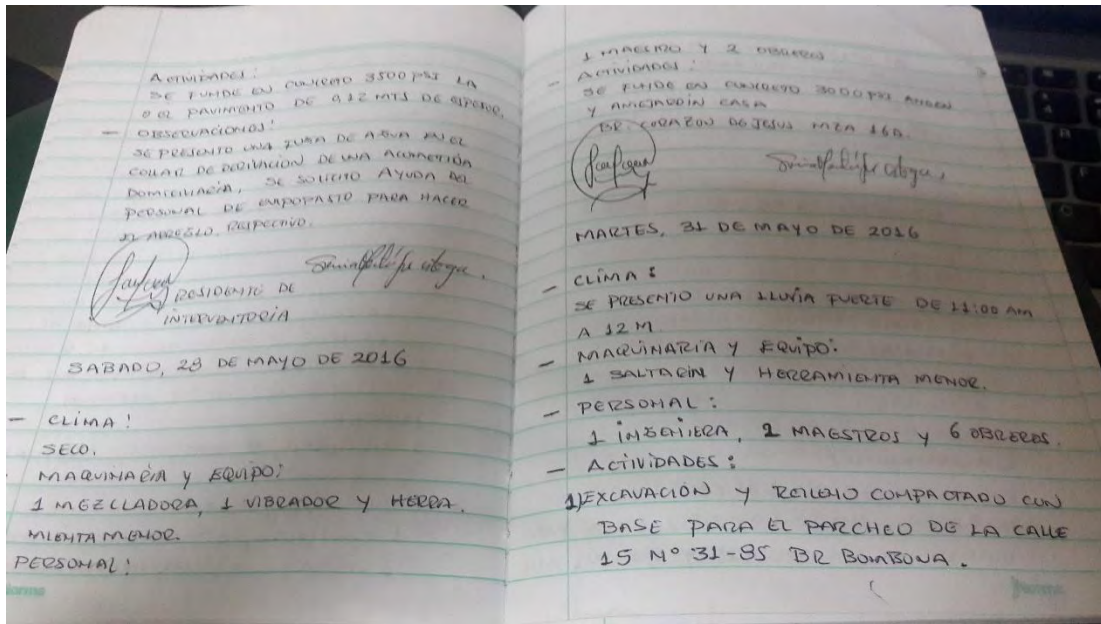 ACTIVIDADES:
SE FUNDE EN CONCRETO 3500 PSI LA
O EL PAVIMENTO DE 0.12 MTS DE ESPESOR.
— OBSERVACIONES:
SE PRESENTO UNA FUGA DE AGUA EN EL
COLLAR DE DERIVACION DE UNA ACOMETIDA
DOMICILIARIA, SE SOLICITO AYUDA DEL
PERSONAL DE EMPOPASTO PARA HACER
EL ARREGLO RESPECTIVO.
RESIDENTE DE
INTERVENTORIA
SABADO, 28 DE MAYO DE 2016
— CLIMA:
SECO.
MAQUINARIA Y EQUIPO:
1 MEZCLADORA, 1 VIBRADOR Y HERRA.
MIENTA MENOR.
PERSONAL:
1 MAESTRO Y 2 OBREROS
— ACTIVIDADES:
SE FUNDE EN CONCRETO 3000 PSI ANDEN
Y ANTEJARDIN CASA
BR. CORAZON DE JESUS MZA 16A.
MARTES, 31 DE MAYO DE 2016
— CLIMA:
SE PRESENTO UNA LLUVIA FUERTE DE 11:00 AM
A 12 M.
— MAQUINARIA Y EQUIPO:
1 SALTARIN Y HERRAMIENTA MENOR.
— PERSONAL:
1 INGENIERA, 2 MAESTROS Y 6 OBREROS.
— ACTIVIDADES:
1) EXCAVACIÓN Y RELLENO COMPACTADO CON
BASE PARA EL PARCHEO DE LA CALLE
15 Nº 31-85 BR BOMBONA.